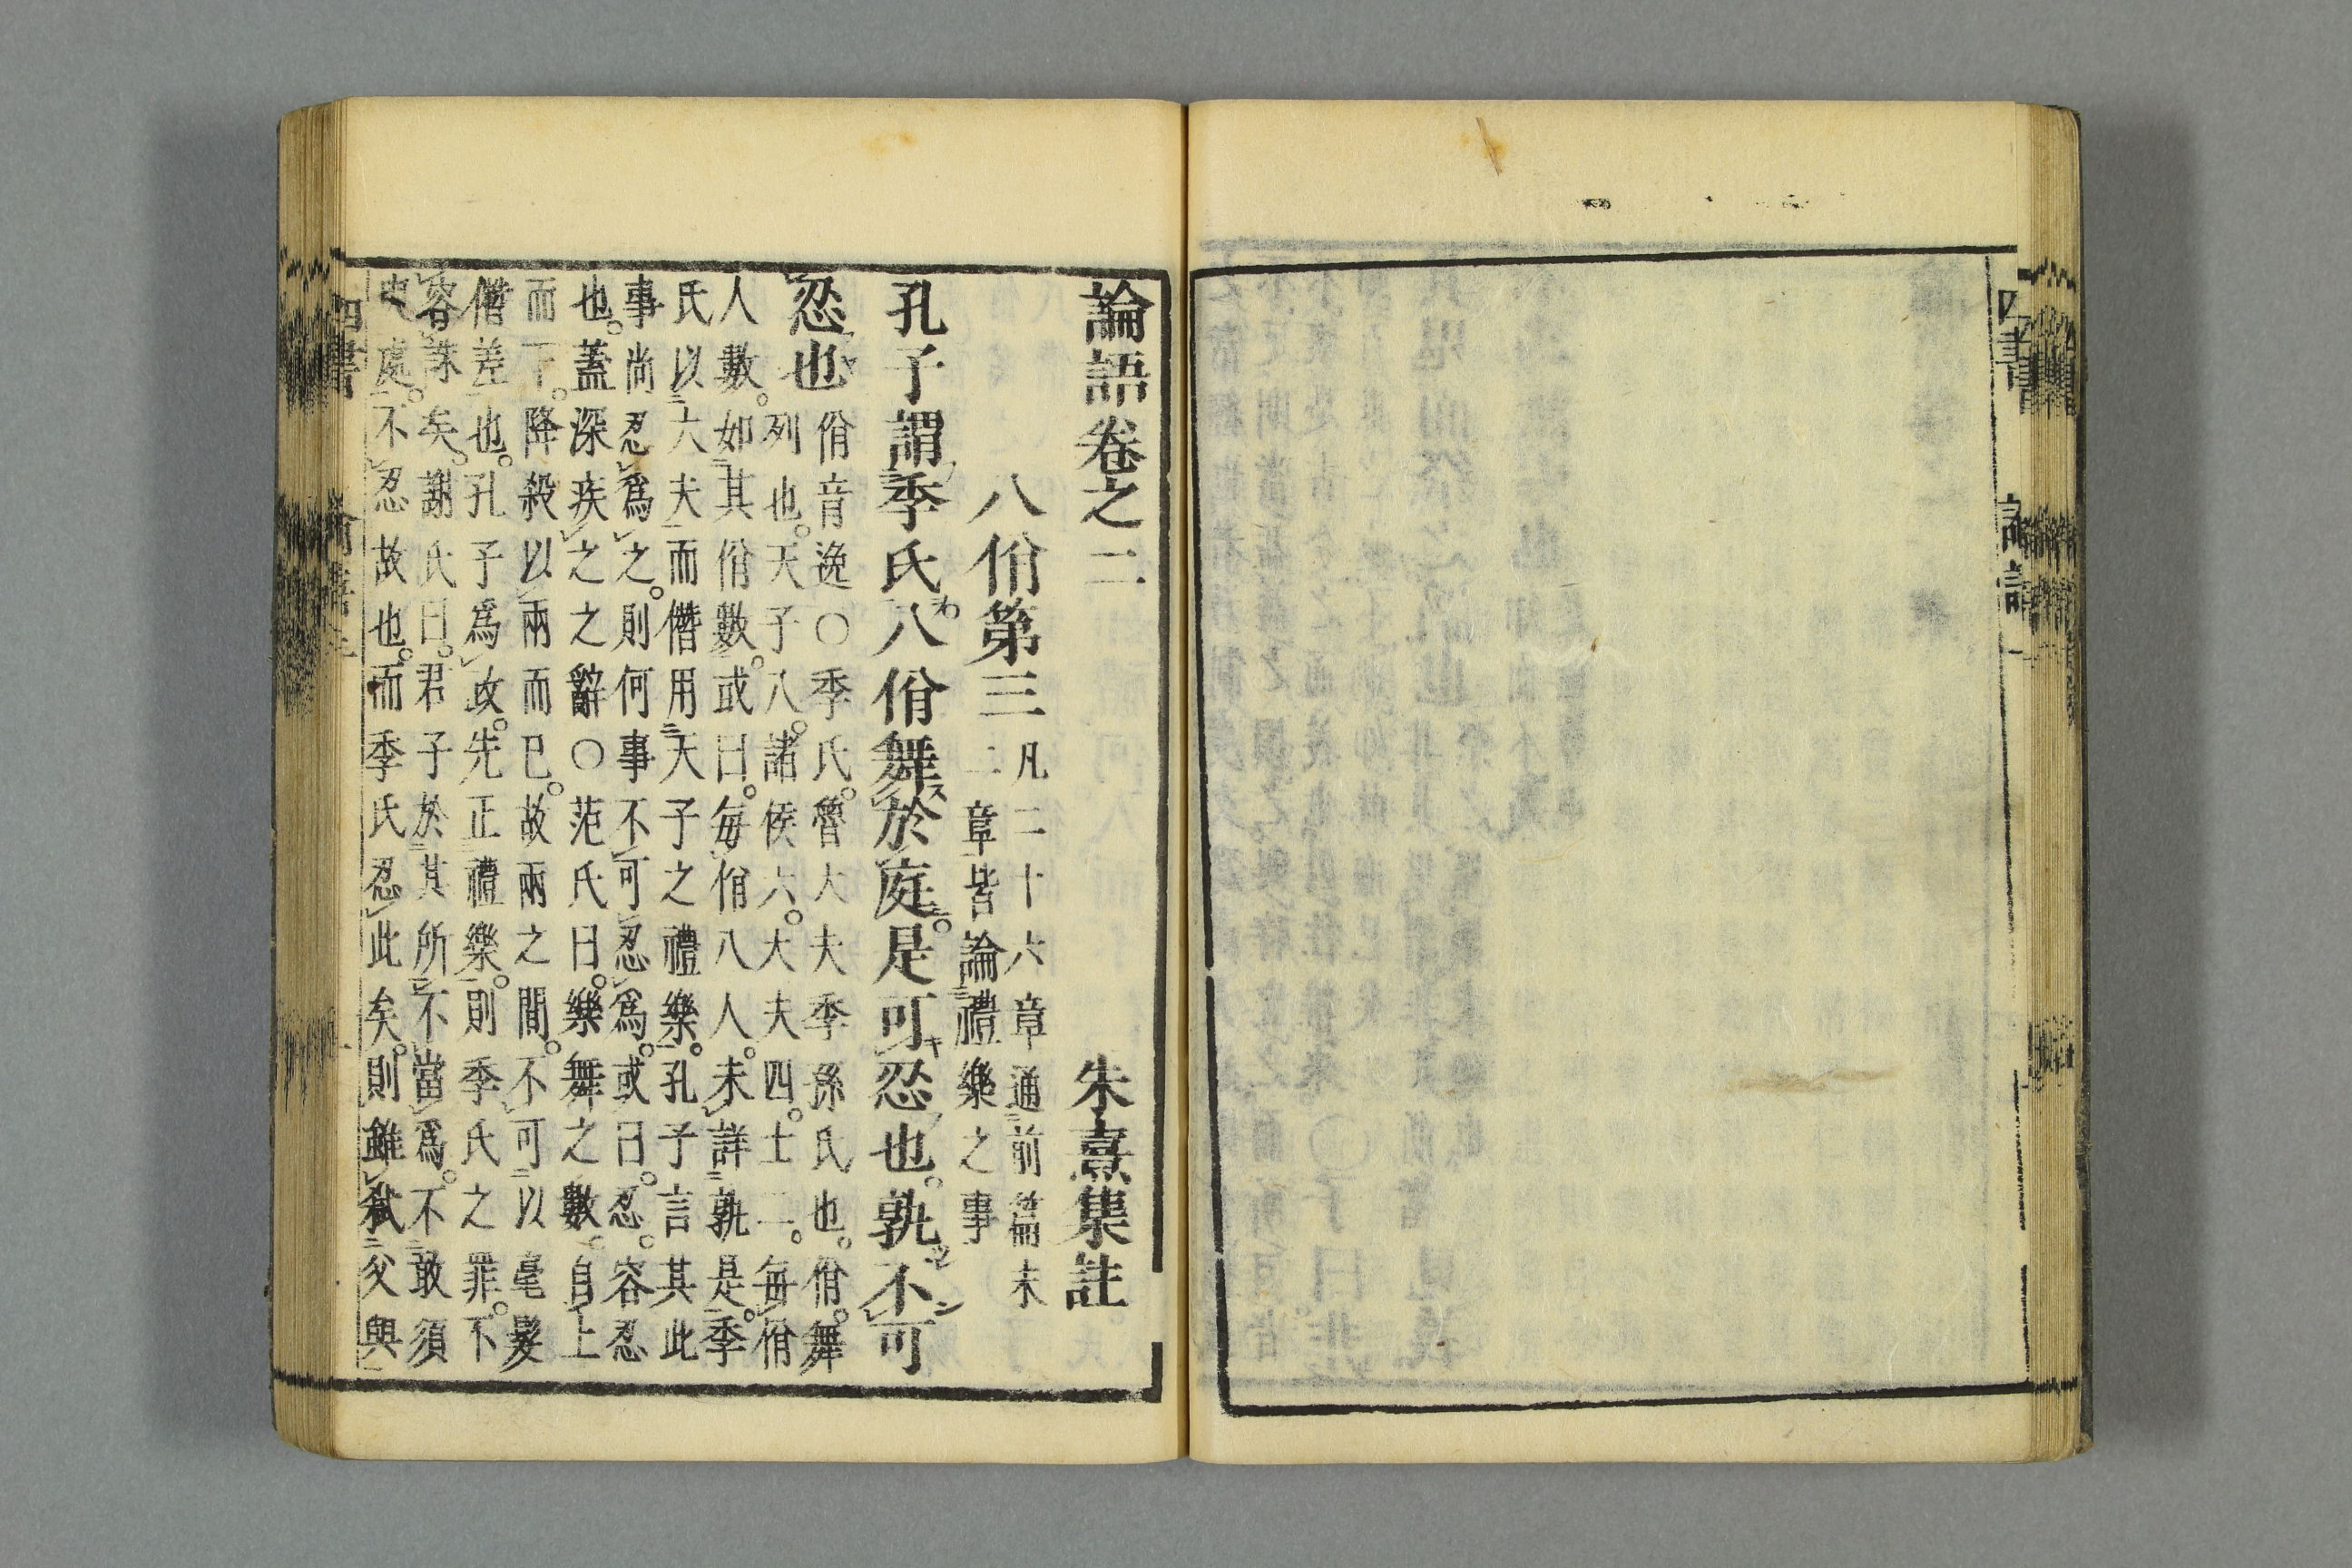 四書 論語 一
論語卷之二 朱熹集註
八佾第三
凡二十六章通前篇末
二章皆論禮樂之事
孔子謂季氏八佾舞於庭。是可忍也。孰不可
忍也
佾音逸○季氏。魯大夫季孫氏也。佾。舞
列也。天子八。諸侯六。大夫四。士二。每佾
人數。如其佾數。或曰。每佾八人。未詳孰是。季
氏以大夫而僭用天子之禮樂。孔子言其此
事尚忍爲之。則何事不可忍爲。或曰。忍。容忍
也。蓋深疾之之辭○范氏曰。樂舞之數。自上
而下。降殺以兩而已。故兩之間。不可以毫髮
僭差也。孔子爲政。先正禮樂。則季氏之罪。不
容誅矣。謝氏曰。君子於其所不當爲。不敢須
臾處。不忍故也。而季氏忍此矣。則雖弑父與
四書